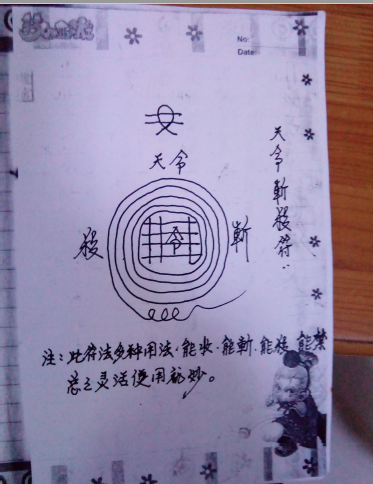 No:
Date:
天令斬殺符
天令
殺 令 斬
注：此符法多种用法.能收.能斬.能殺.能禁
总之灵活使用就妙。